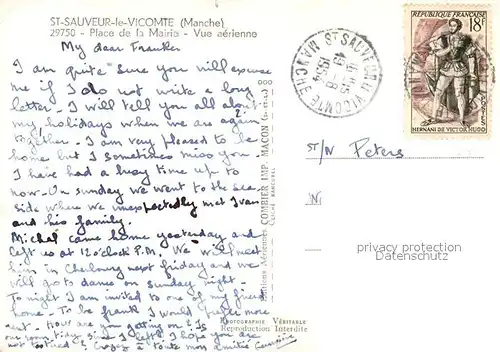 ST-SAUVEUR-le-VICOMTE (Manche)
29750 - Place de la Mairie - Vue aérienne
My dear Franker
I am quite sure you will excuse
me if I do not write a long
letter - I will tell you all about
my holidays when we are again
together - I am very pleased to be
home but I sometimes miss you.
I have had a busy time up to
now. On sunday we went to the sea
side when we unexpectedly met Ivan
and his family.
Michel came home yesterday and
left us at 12 o'clock P.M. We will meet
him in Cherbourg next friday and we
will go to dances on sunday night.
To night I am invited to one of my friends
home. To be frank I would prefer more
How are you getting on? Is
our room tidy since I left? I hope you are
not too tired? Croyez à toute mon amitié
COMBIER IMP. MACON
PHOTOGRAPHIE VÉRITABLE
Reproduction Interdite
ST SAUVEUR LE VICOMTE
MANCHE
RÉPUBLIQUE FRANÇAISE
18F
POSTES
HERNANI DE VICTOR HUGO
ST/W Peters
W.
privacy protection
Datenschutz